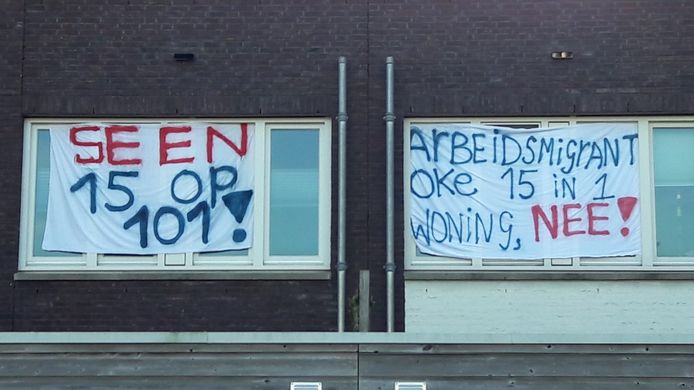 SEEN
15 OP
101!
ARBEIDSMIGRANT
OKE 15 IN 1
WONING, NEE!